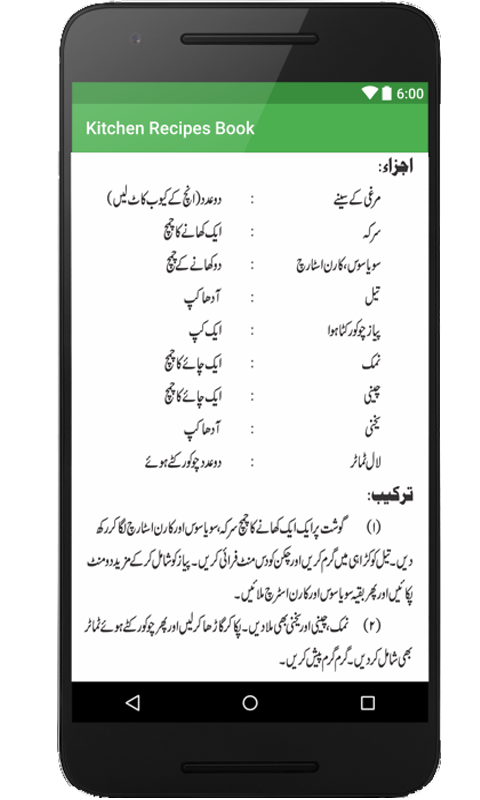 6:00
Kitchen Recipes Book
اجزاء:
مرغی کے سینے : دو عدد (انچ کے کیوب کاٹ لیں)
سرکہ : ایک کھانے کا چمچ
سویا سوس، کارن اسٹارچ : دو کھانے کے چمچ
تیل : آدھا کپ
پیاز چوکور کٹا ہوا : ایک کپ
نمک : ایک چائے کا چمچ
چینی : ایک چائے کا چمچ
یخنی : آدھا کپ
لال ٹماٹر : دو عدد چوکور کٹے ہوئے
ترکیب:
(۱) گوشت پر ایک ایک کھانے کا چمچ سرکہ، سویا سوس اور کارن اسٹارچ لگا کر رکھ
دیں۔ تیل کو کڑاہی میں گرم کریں اور چکن کو دس منٹ فرائی کریں۔ پیاز کو شامل کر کے مزید دو منٹ
پکائیں اور پھر بقیہ سویا سوس اور کارن اسٹرچ ملائیں۔
(۲) نمک، چینی اور یخنی بھی ملا دیں۔ پکا کر گاڑھا کر لیں اور پھر چوکور کٹے ہوئے ٹماٹر
بھی شامل کر دیں۔ گرم گرم پیش کریں۔